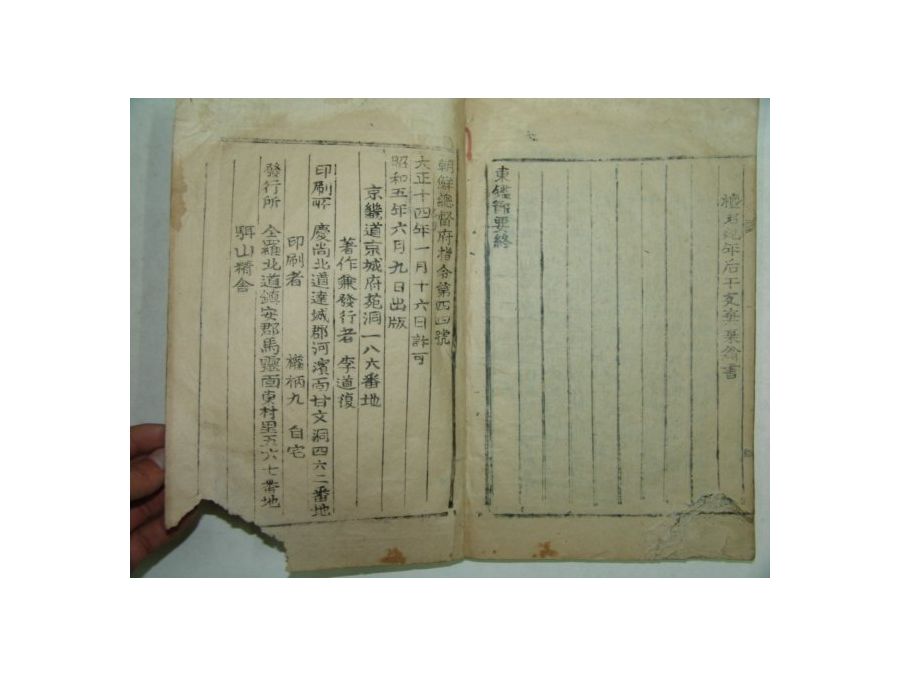 檀君紀年后干支
東鑑輯要終
朝鮮總督府指令第四四號
大正十四年一月十六日許可
昭和五年六月九日出版
京畿道京城府苑洞一八六番地
著作兼發行者 李道復
印刷所 慶尚北道達城郡河濱面甘文洞四六二番地
印刷者 權柄九 自宅
發行所 全羅北道鎮安郡馬靈面東村里五六七番地
駬山精舍